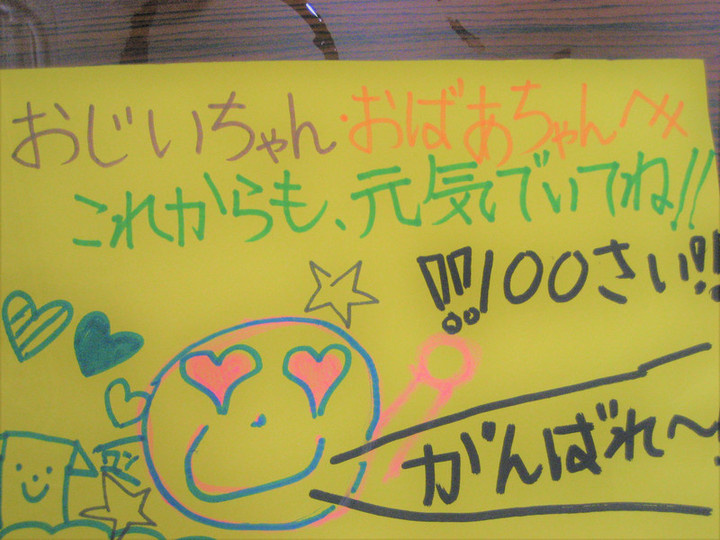 おじいちゃん・おばあちゃんへ
これからも、元気でいてね!!
!!!100さい!!
がんばれ〜